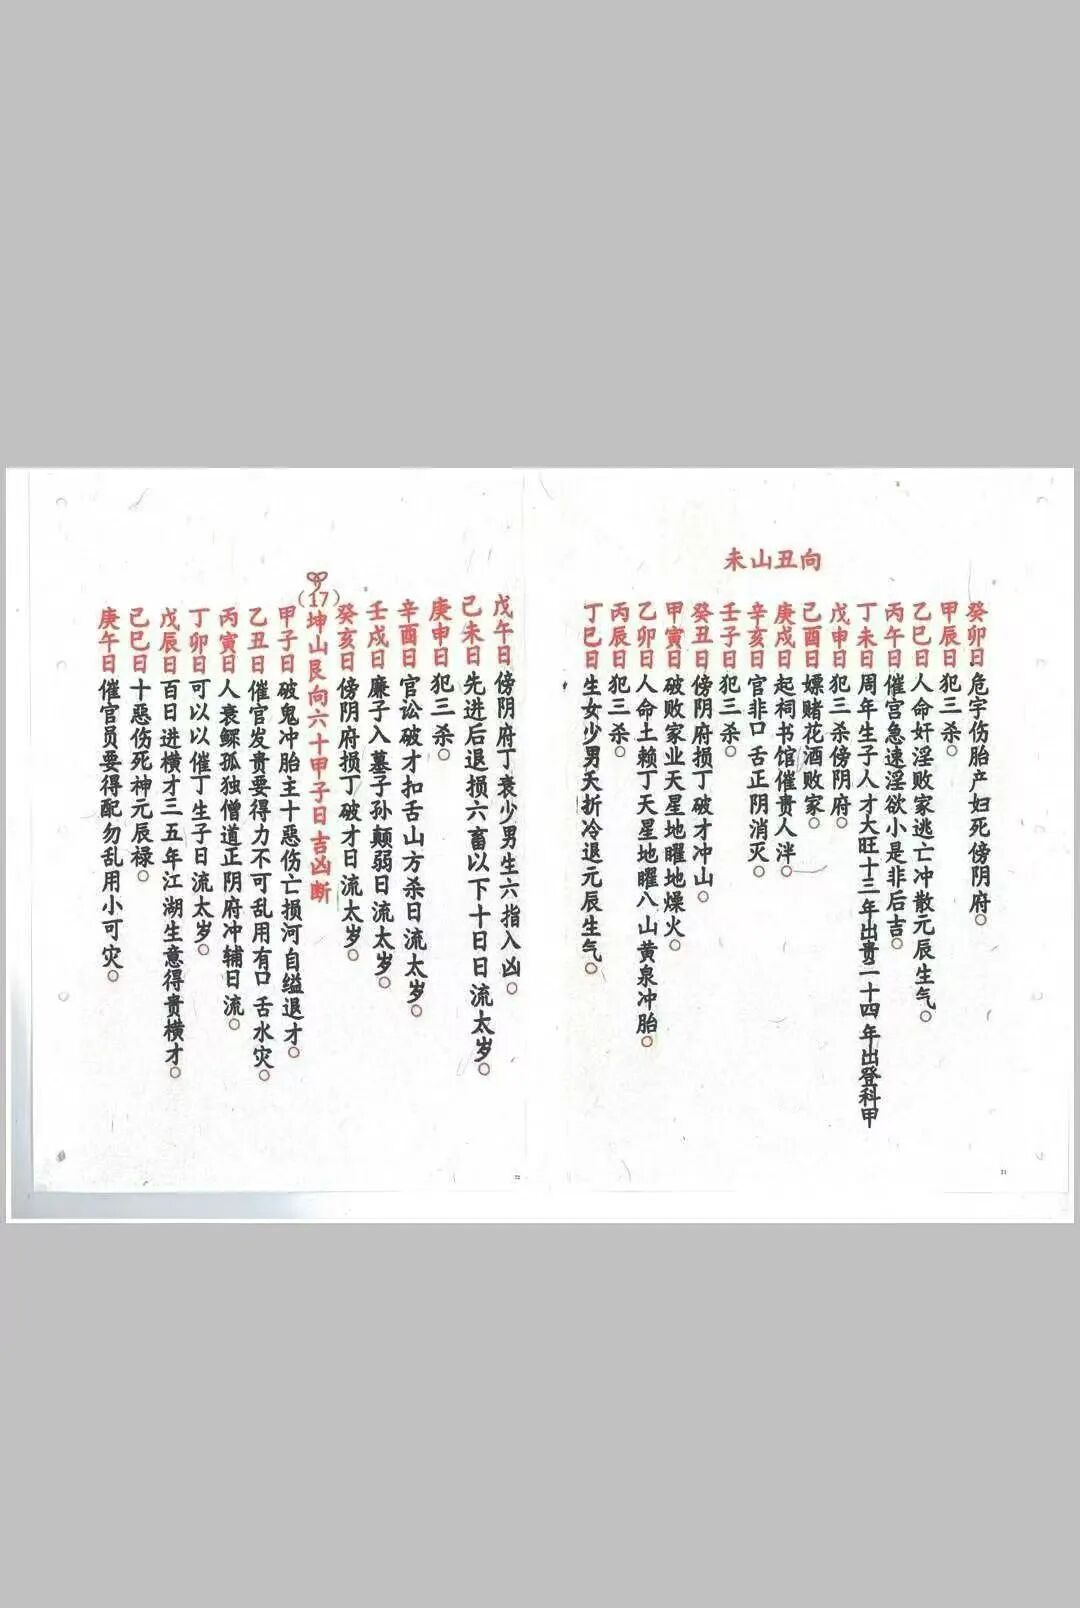 未山丑向
癸卯日危宇伤胎产妇死傍阴府。
甲辰日犯三杀。
乙巳日人命奸淫败家逃亡冲散元辰生气。
丙午日催宫急速淫欲小是非后吉。
丁未日周年生子人才大旺十三年出贵二十四年出登科甲
戊申日犯三杀傍阴府。
己酉日嫖赌花酒败家。
庚戌日起祠书馆催贵人泮。
辛亥日官非口舌正阴消灭。
壬子日犯三杀。
癸丑日傍阴府损丁破才冲山。
甲寅日破败家业天星地曜地燥火。
乙卯日人命土赖丁天星地曜八山黄泉冲胎。
丙辰日犯三杀。
丁巳日生女少男夭折冷退元辰生气。
21
戊午日傍阴府丁衰少男生六指入凶。
己未日先进后退损六畜以下十日日流太岁。
庚申日犯三杀。
辛酉日官讼破才扣舌山方杀日流太岁。
壬戌日廉子入墓子孙颠弱日流太岁。
癸亥日傍阴府损丁破才日流太岁。
(17)坤山艮向六十甲子日吉凶断
甲子日破鬼冲胎主十恶伤亡损河自缢退才。
乙丑日催官发贵要得力不可乱用有口舌水灾。
丙寅日人衰鳏孤独僧道正阴府冲辅日流。
丁卯日可以以催丁生子日流太岁。
戊辰日百日进横才三五年江湖生意得贵横才。
己巳日十恶伤死神元辰禄。
庚午日催官员要得配勿乱用小可灾。
22